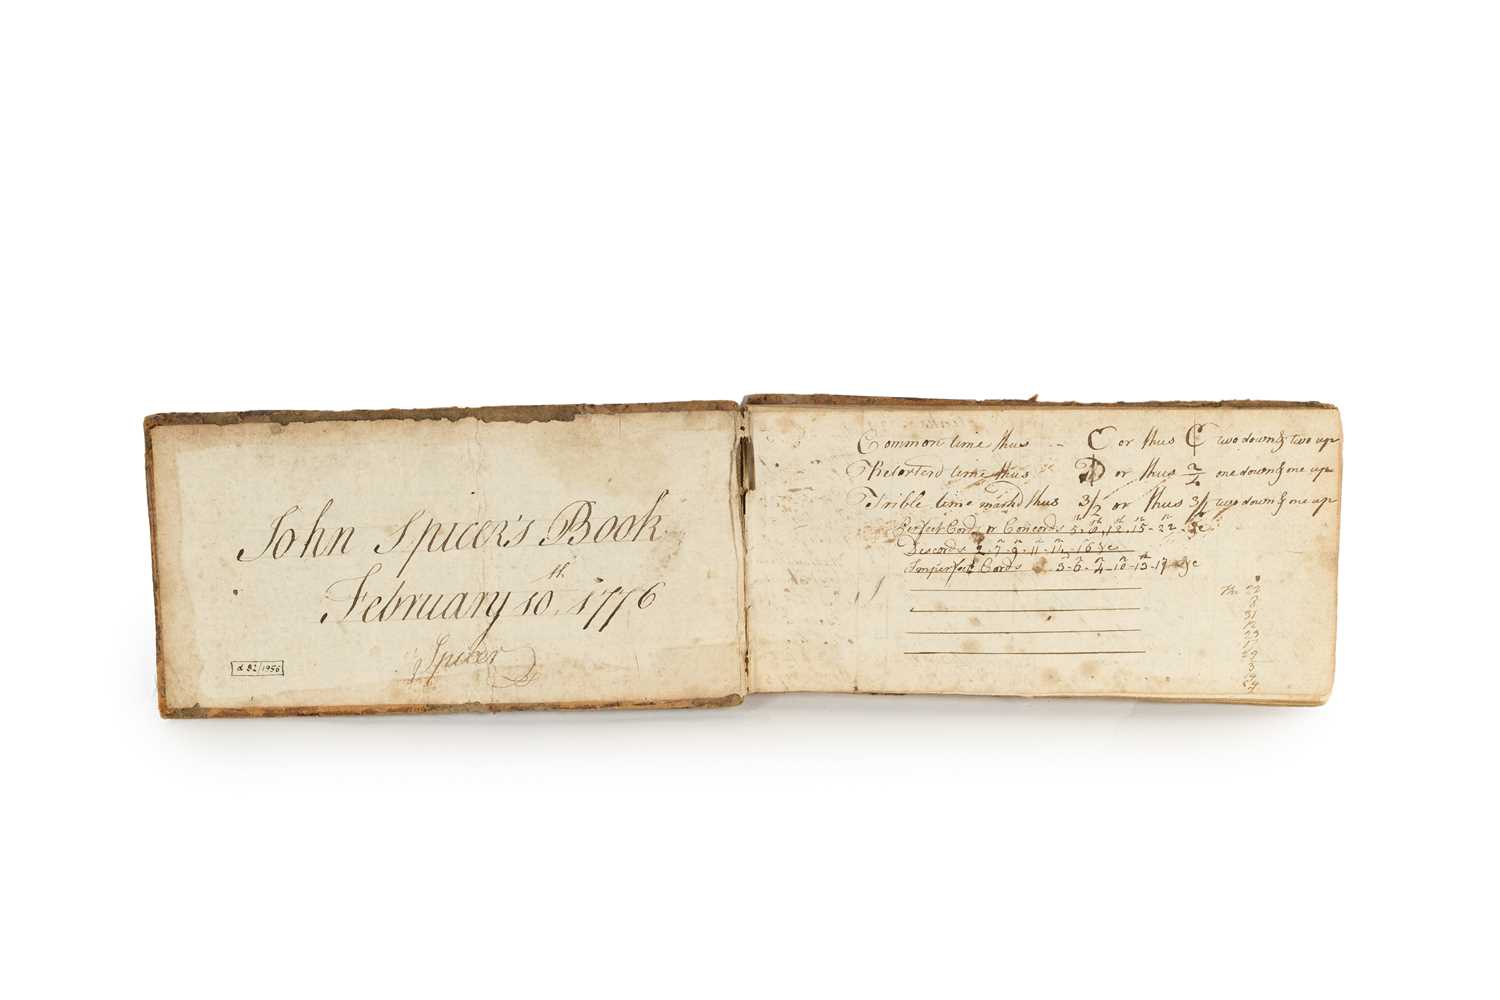 John Spicer's Book
February 10th, 1776
Spicer
d 82/1956
Common time thus -- C or thus ₵ two down & two up
Retorted time thus or thus 2/ one down & one up
Trible time markd thus 3/2 or thus 3/2 two down & one up
Perfect Cords or Concords 5 12 15 - 22 - &c
Discords 2 - 7 - 9 - 11 - 14 - 16 &c
Imperfect Cords 3 - 6 - 10 - 13 - 17 &c
22
8
31
29
3
24